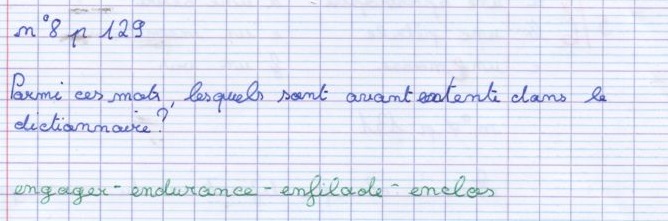 n°8 p 129
Parmi ces mots, lesquels sont avant entente dans le
dictionnaire?
engager - endurance - enfilade - enclos